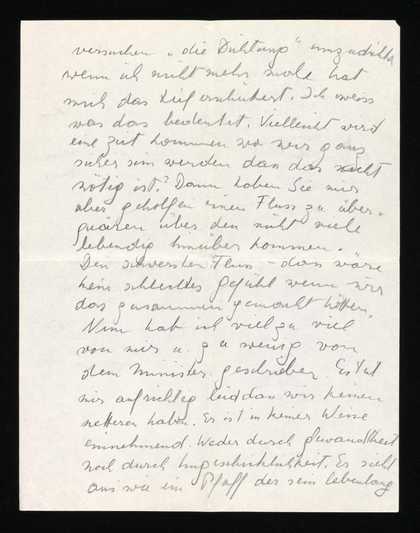 versuchen „die Dichtung" umzudichten
wenn ich nicht mehr wole hat
mich das tief erschüttert. Ich weiss
was das bedeutet. Vielleicht wird
eine Zeit kommen wo wir ganz
sicher sein werden dan das nicht
nötig ist? Dann haben Sie mir
aber geholfen einen Fluss zu über-
queren über den nicht viele
lebendig hinüber kommen.
Den schwersten Fluss – das wäre
kein schlechtes gefühl wenn wir
das zusammen gemacht hätten.
Nun hab ich viel zu viel
von mir u. zu wenig von
dem Minister geschrieben. Es tut
mir aufrichtig leid dan wir keinen
netteren haben. Er ist in keiner Weise
einnehmend. Weder durch Gewandtheit
noch durch Ungeschicklichkeit. Er sieht
aus wie ein Pfaff der sein lebenlang